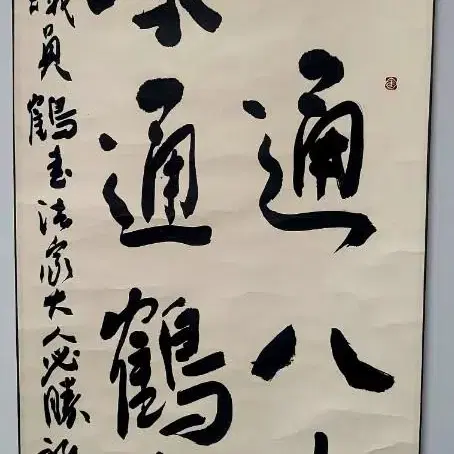 通八
通鶴
議員鶴書法家大人必勝